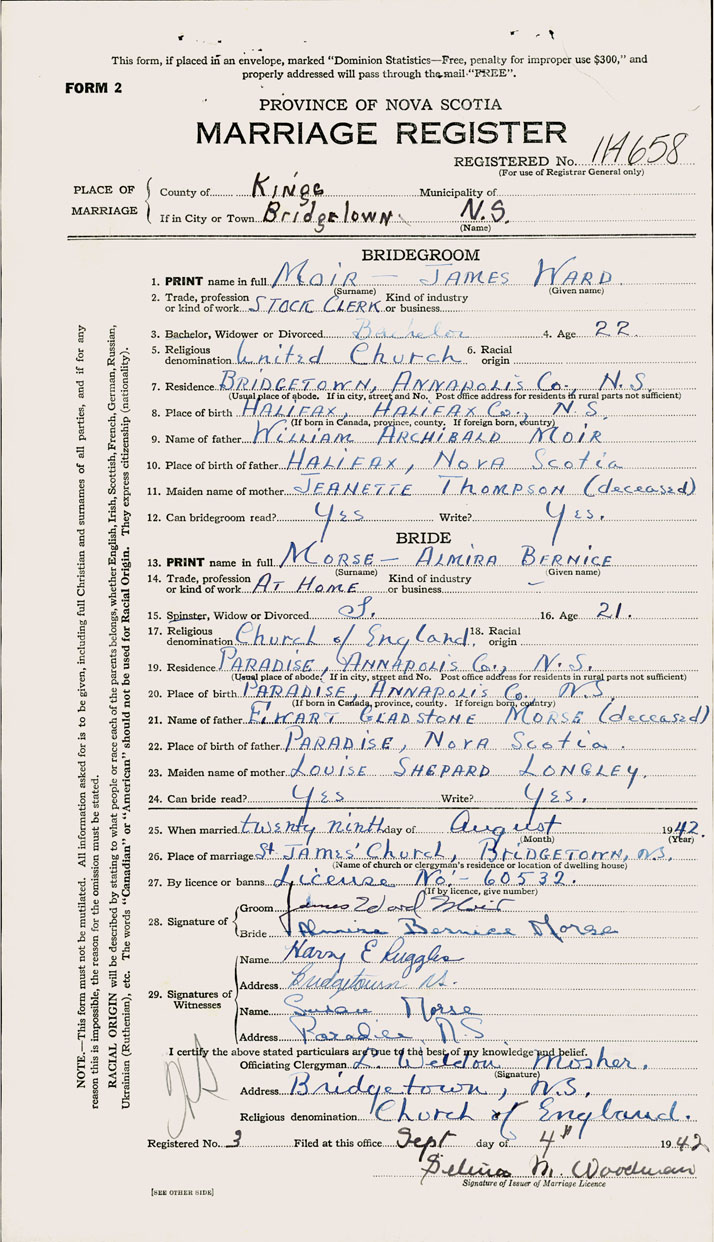 This form, if placed in an envelope, marked "Dominion Statistics—Free, penalty for improper use $300," and
properly addressed will pass through the mail "FREE".
FORM 2
PROVINCE OF NOVA SCOTIA
MARRIAGE REGISTER
REGISTERED No. 114658
(For use of Registrar General only)
PLACE OF MARRIAGE
County of Kings Municipality of
If in City or Town Bridgetown N.S.
(Name)
BRIDEGROOM
1. PRINT name in full MOIR — JAMES WARD
(Surname) (Given name)
2. Trade, profession or kind of work STOCK CLERK Kind of industry or business
3. Bachelor, Widower or Divorced Bachelor 4. Age 22
5. Religious denomination United Church 6. Racial origin
7. Residence BRIDGETOWN, ANNAPOLIS Co., N.S.
(Usual place of abode. If in city, street and No. Post office address for residents in rural parts not sufficient)
8. Place of birth HALIFAX, HALIFAX Co., N.S.
(If born in Canada, province, county. If foreign born, country)
9. Name of father WILLIAM ARCHIBALD MOIR
10. Place of father HALIFAX, NOVA Scotia
11. Maiden name of mother JEANETTE THOMPSON (deceased)
12. Can bridegroom read? YES Write? YES.
BRIDE
13. PRINT name in full MORSE — ALMIRA BERNICE
(Surname) (Given name)
14. Trade, profession or kind of work AT HOME Kind of industry or business —
15. Spinster, Widow or Divorced S. 16. Age 21.
17. Religious denomination Church of England. 18. Racial origin
19. Residence PARADISE, ANNAPOLIS Co., N.S.
(Usual place of abode. If in city, street and No. Post office address for residents in rural parts not sufficient)
20. Place of birth PARADISE, ANNAPOLIS Co. N.S.
(If born in Canada, province, county. If foreign born, country)
21. Name of father GLADSTONE MORSE (deceased)
22. Place of birth of father PARADISE, NOVA Scotia.
23. Maiden name of mother LOUISE SHEPARD LONGLEY.
24. Can bride read? YES Write? YES.
25. When married twenty ninth day of August 1942.
(Month) (Year)
26. Place of marriage St. JAMES' Church, BRIDGETOWN, N.S.
(Name of church or clergyman's residence or location of dwelling house)
27. By licence or banns License No.- 60532.
(If by licence, give number)
28. Signature of
Groom James Ward Moir
Bride Almira Bernice Morse
29. Signatures of Witnesses
Name Harry E Ruggles
Address Bridgetown N.S.
Name Susan Morse
Address Paradise, N.S
I certify the above stated particulars are true to the best of my knowledge and belief.
Officiating Clergyman L. Weldon Mosher.
(Signature)
Address Bridgetown, N.S.
Religious denomination Church of England.
Registered No. 3 Filed at this office Sept day of 4th 1942
Selina M. Woodman
Signature of Issuer of Marriage Licence
[SEE OTHER SIDE]
NOTE.—This form must not be mutilated. All information asked for is to be given, including full Christian and surnames of all parties, and if for any
reason this is impossible, the reason for the omission must be stated.
RACIAL ORIGIN will be described by stating to what people or race each of the parents belongs, whether English, Irish, Scottish, French, German, Russian,
Ukrainian (Ruthenian), etc. The words "Canadian" or "American" should not be used for Racial Origin. They express citizenship (nationality).